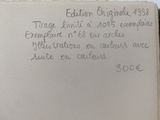 Edition Originale 1958
Tirage limité à 1085 exemplaire
Exemplaire n° 68 sur arches
Illustrations en couleurs avec
suite en couleurs
300€